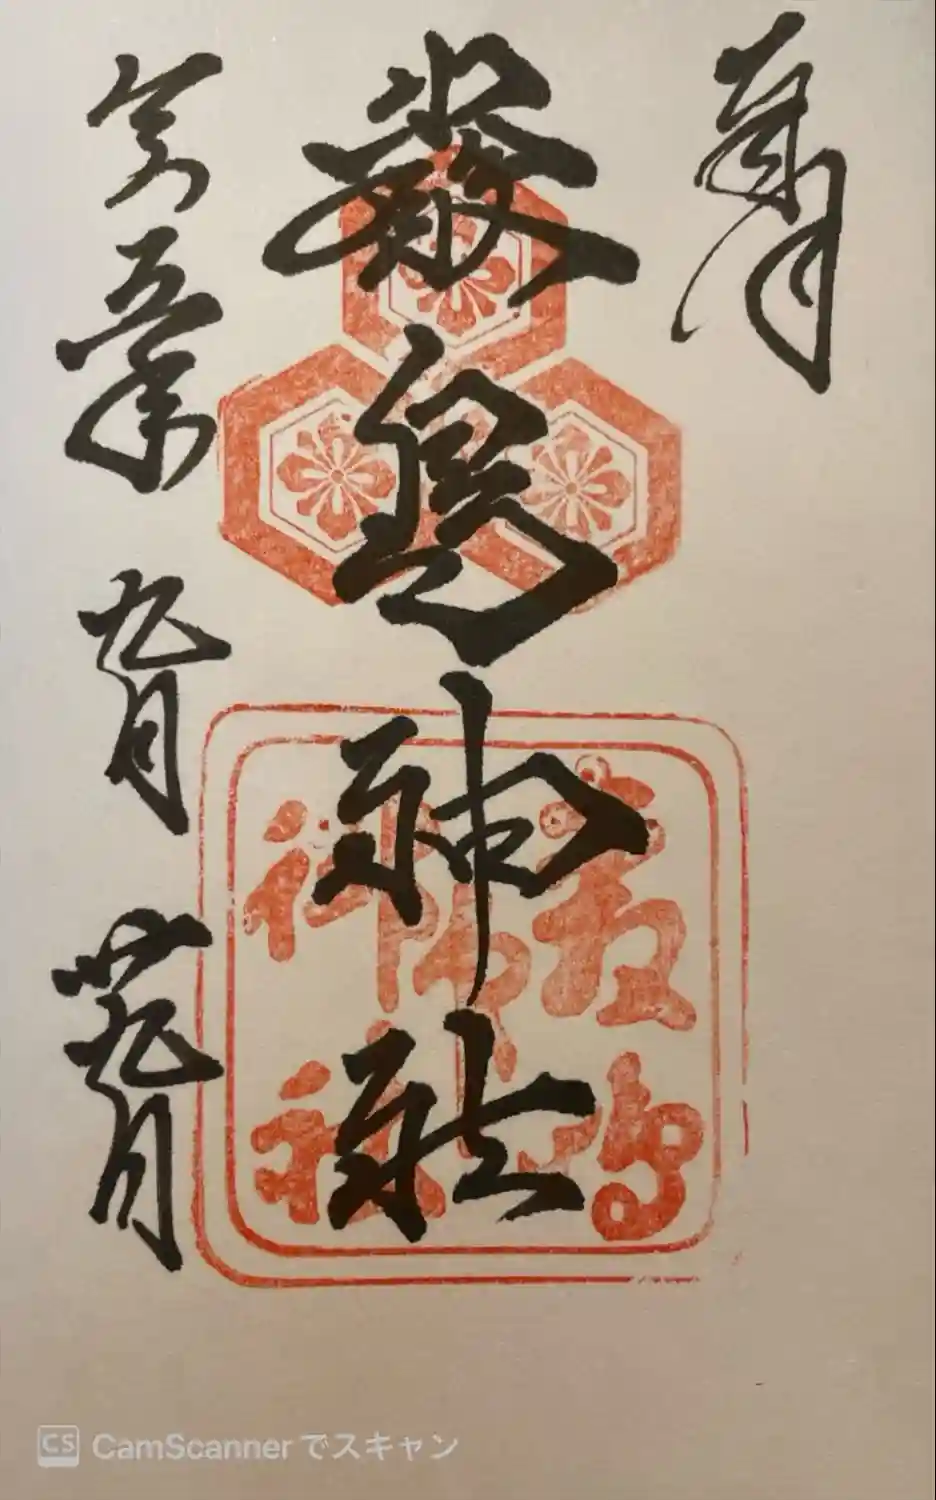 奉拝
嚴島神社
令和五年九月廿九日
CamScannerでスキャン